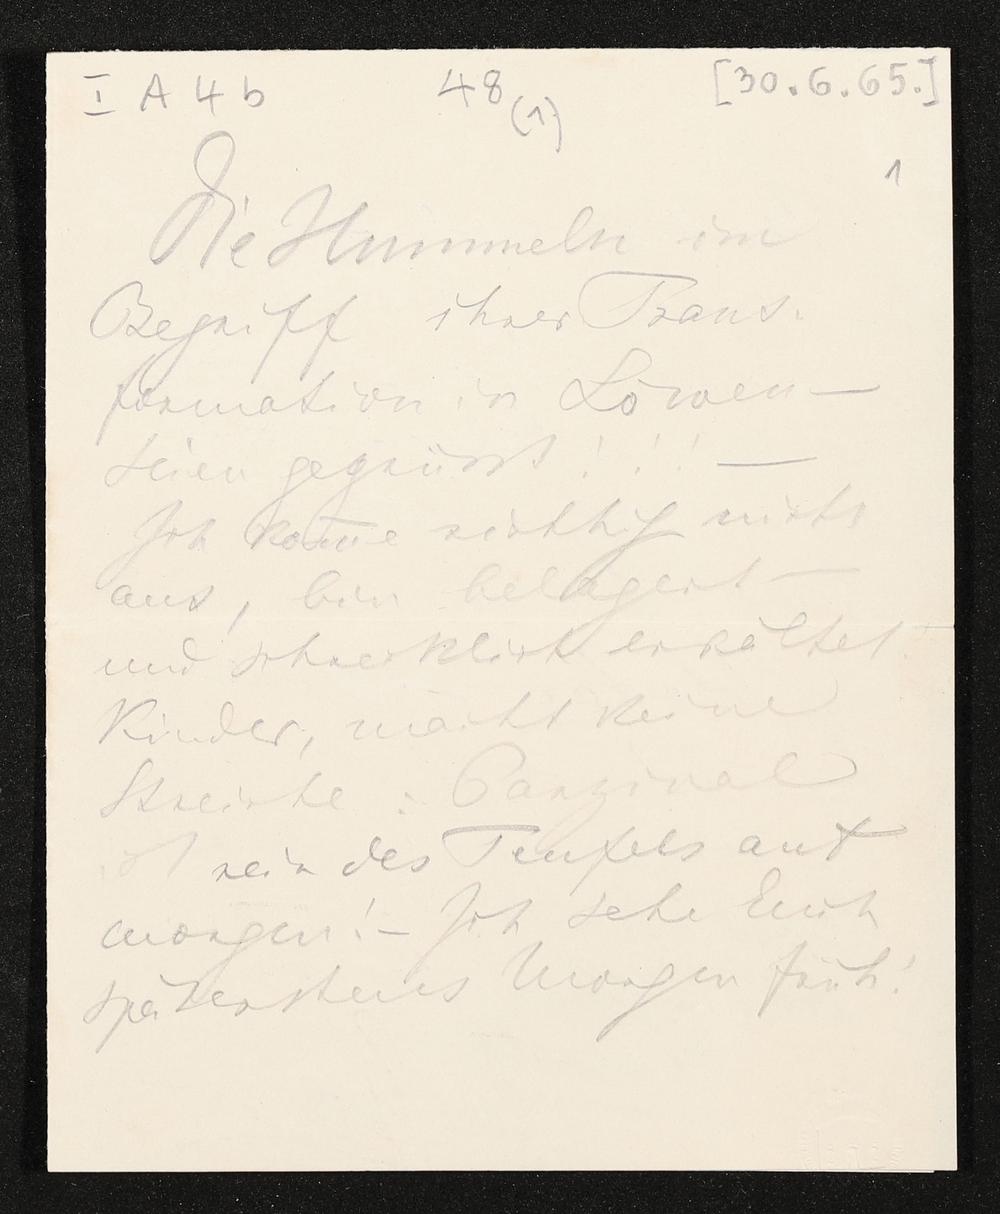 I A 4 b 48 (1) [30.6.65.]
1
Die Hummeln im
Begriff ihrer Trans-
formation in Löwen —
seien gegrüsst!!! —
Ich komme richtig nicht
aus, bin belagert —
und schrecklich erkältet!
Kinder, macht keine
Streiche: Parzival
ist rein des Teufels auf
morgen! — Ich sehe Euch
späterstens Morgen früh!